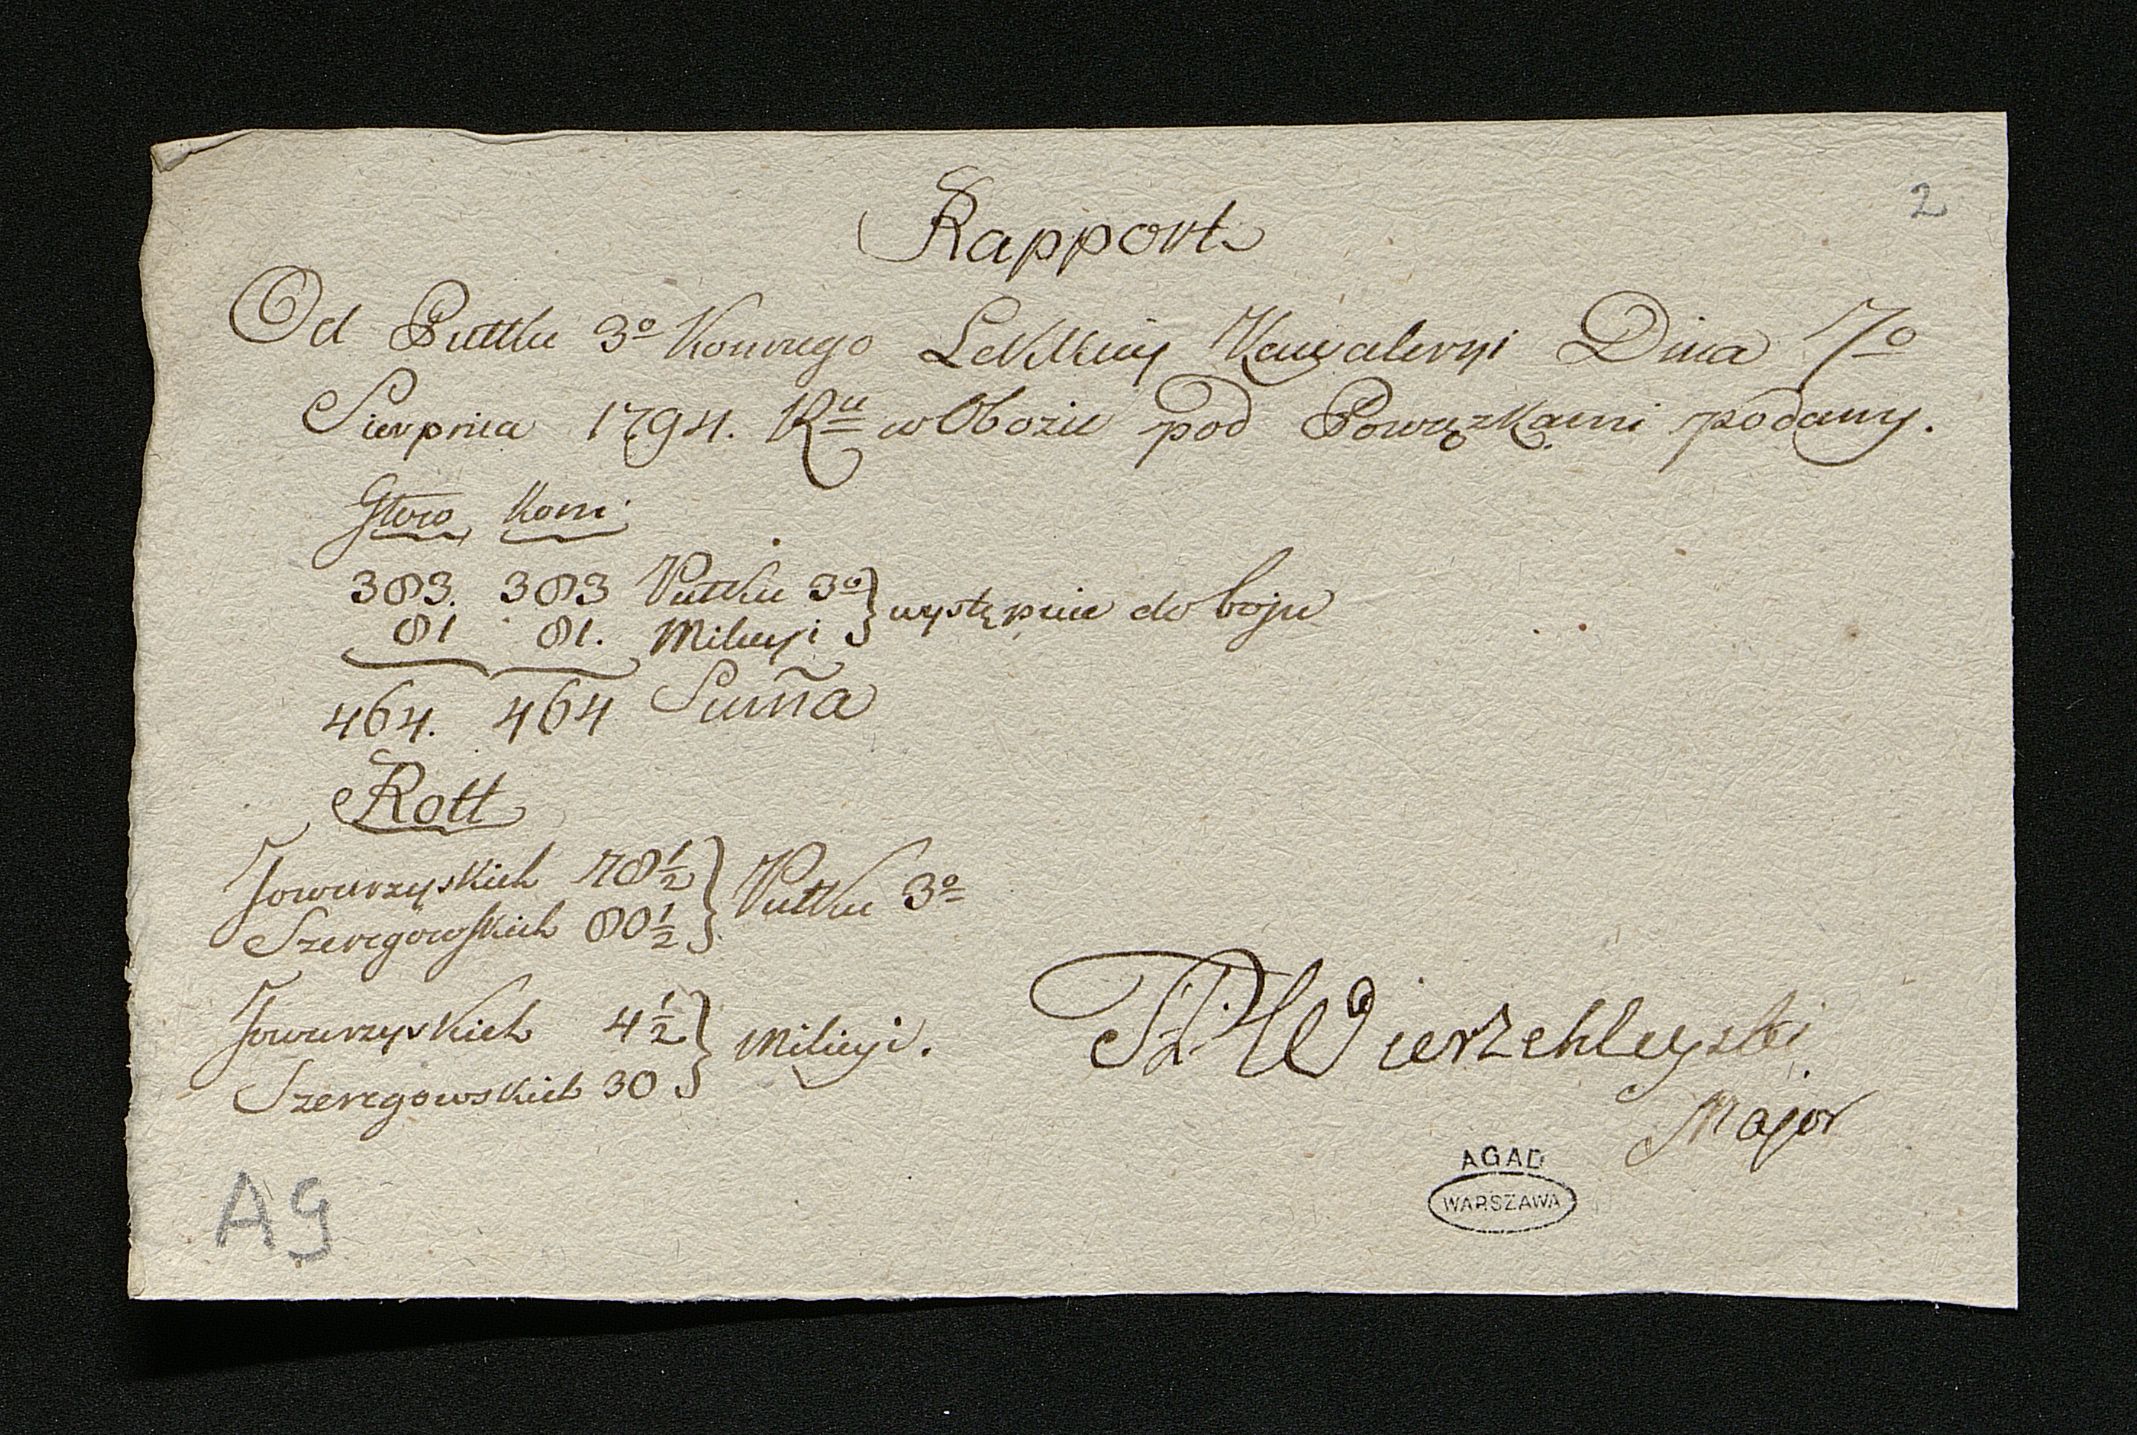 2
Rapport
Od Pułku 3º Konnego Lekkiey Kawaleryi Dnia 7º
Sierpnia 1794. Ru w Obozie pod Powązkami podany.
Głow Koni
383. 383 Pułku 3º } wystąpiło do boju
81 81. Milicyi
464. 464 Sum̃a
Rott
Towarzyskich 78 1/2 } Pułku 3º
Szeregowskich 80 1/2
Towarzyskich 4 1/2 } Milicyi.
Szeregowskich 30
Wierzchleyski
Major
AGAD
WARSZAWA
A9